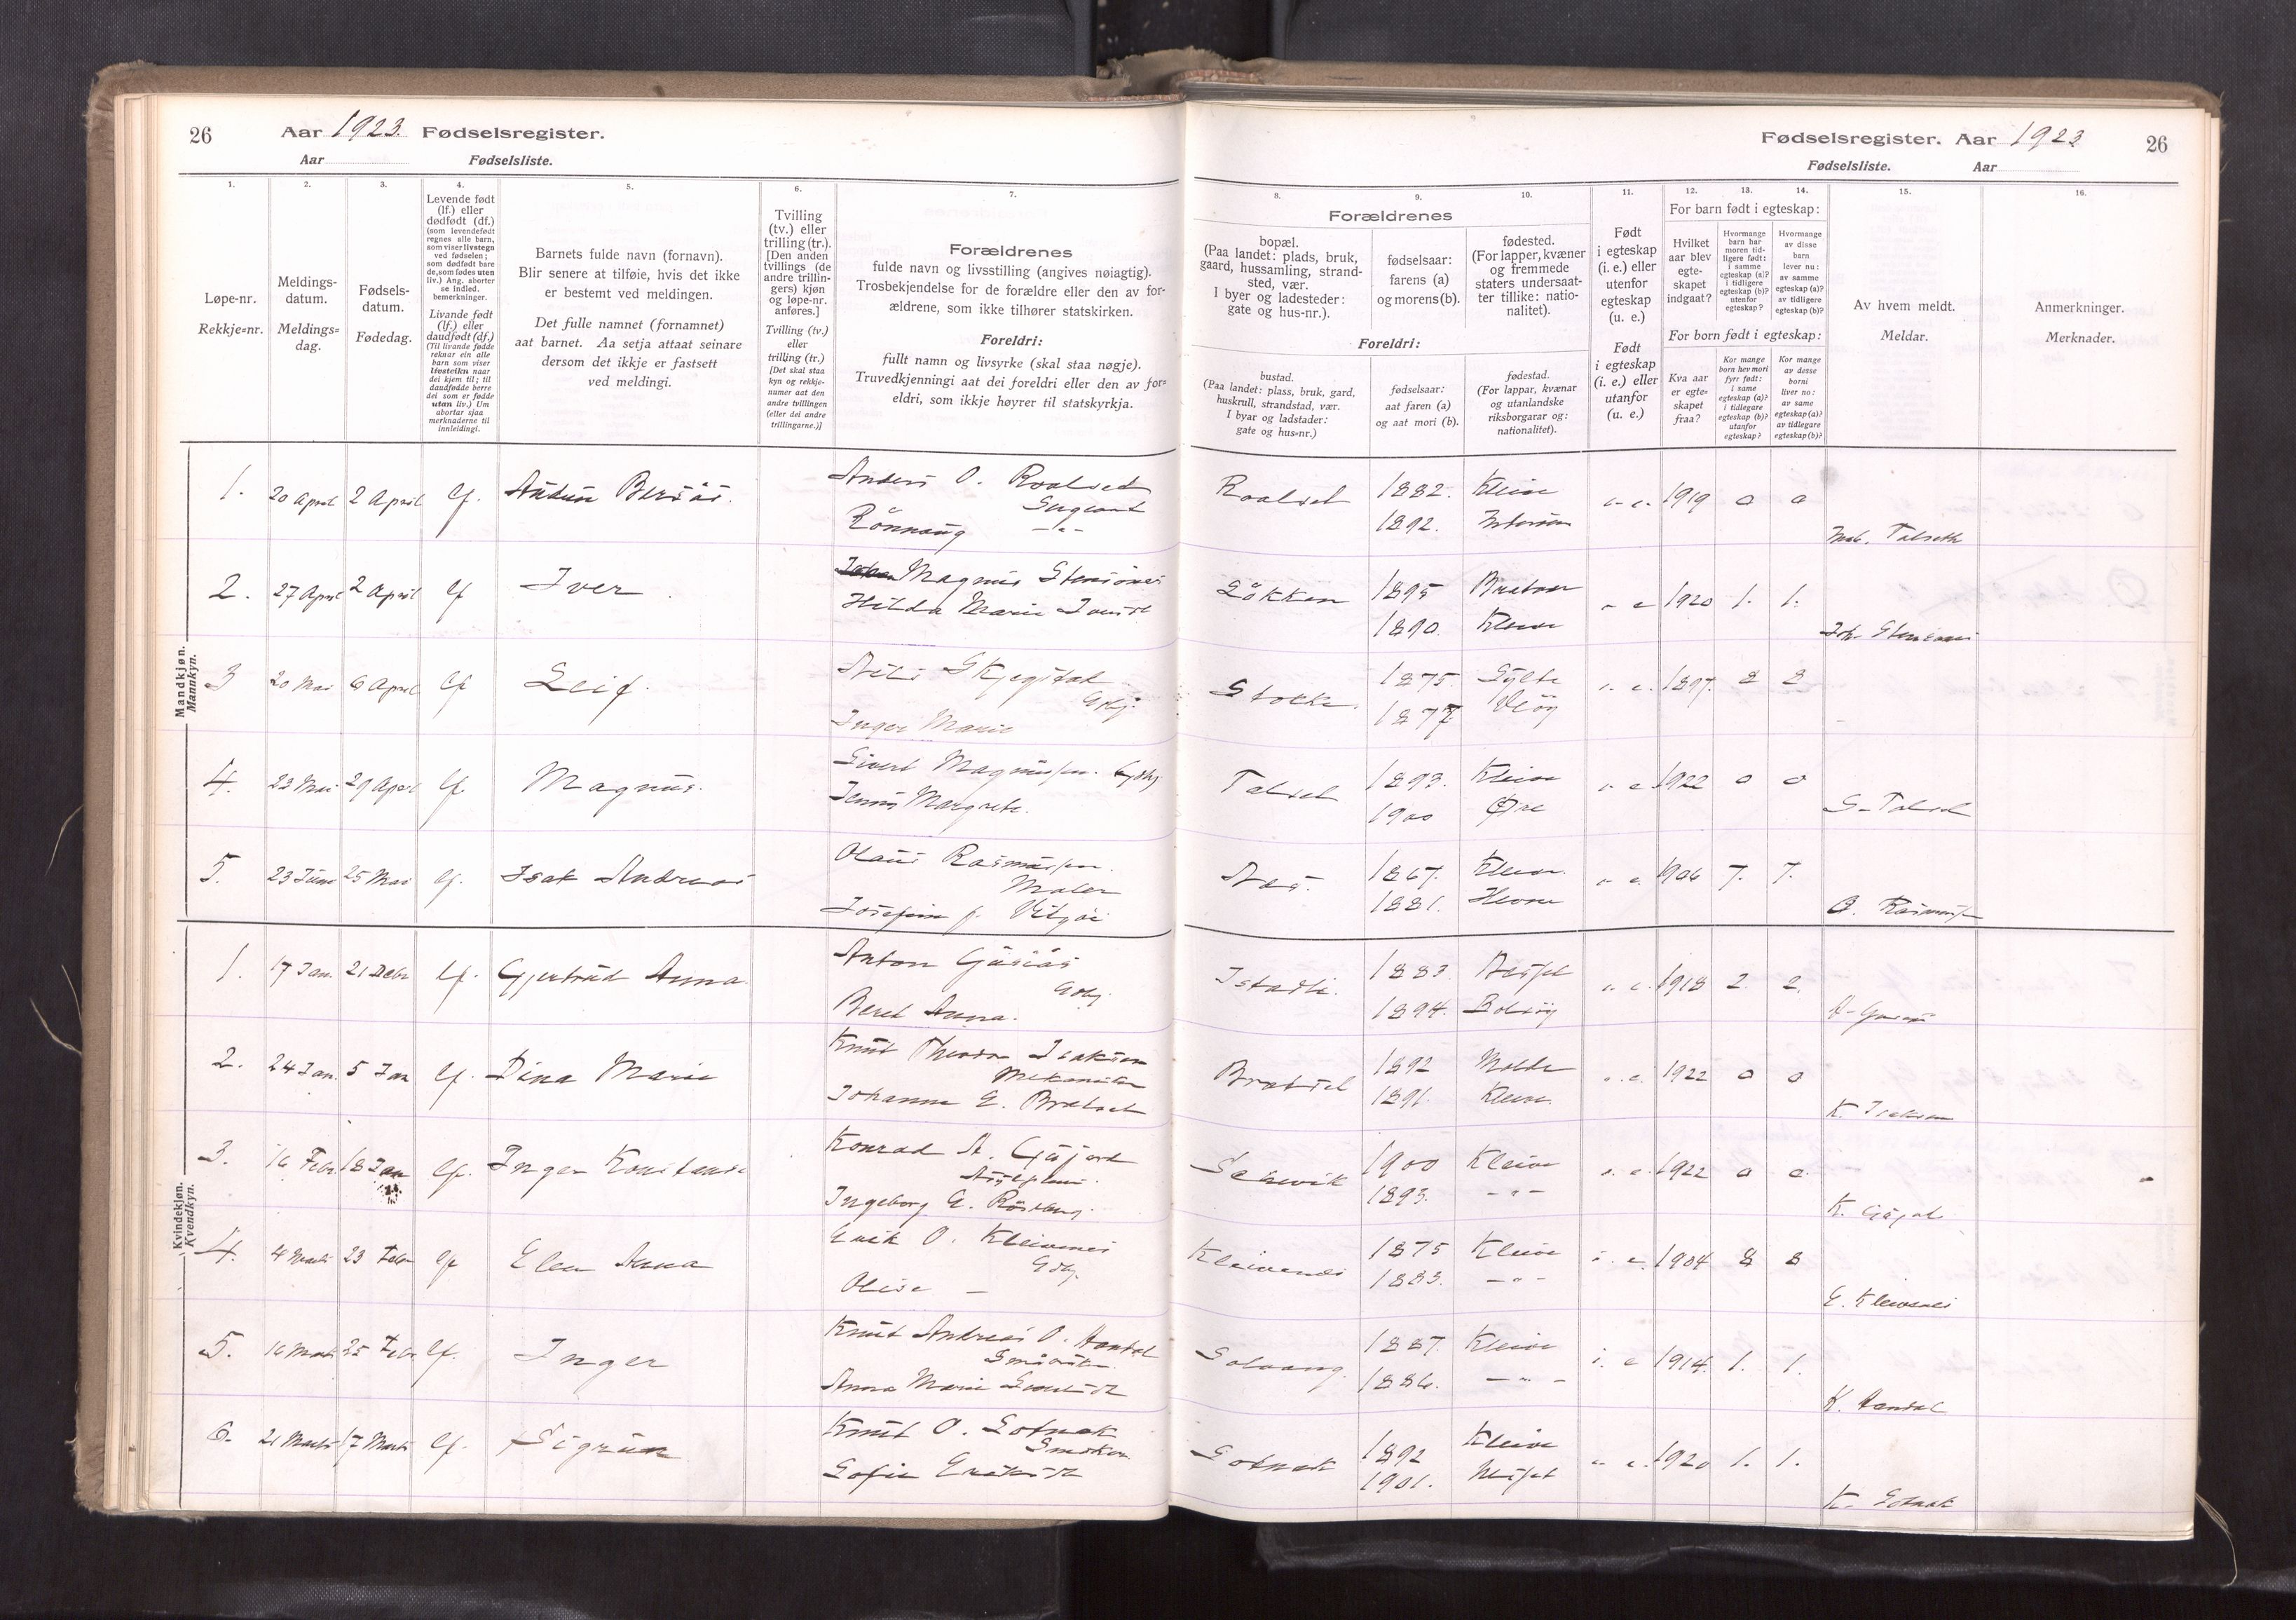 26 Aar 1923. Fødselsregister.
Aar Fødselsliste.
1.
2.
3.
4.
5.
6.
7.
Løpe-nr.
Rekkje=nr.
Meldings-
datum.
Meldings=
dag.
Fødsels-
datum.
Fødedag.
Levende født
(lf.) eller
dødfødt (df.)
(som levendefødt
regnes alle barn,
som viser livstegn
ved fødselen;
som dødfødt bare
de, som fødes uten
liv.) Ang. aborter
se indled.
bemerkninger.
Livande født
(lf.) eller
daudfødt (df.)
(Til livande fødde
reknar ein alle
barn som viser
livsteikn naar
dei kjem til; til
daudfødde berre
dei som er fødde
utan liv.) Um
abortar sjaa
merknaderne til
innleidingi.
Barnets fulde navn (fornavn).
Blir senere at tilføie, hvis det ikke
er bestemt ved meldingen.
Det fulle namnet (fornamnet)
aat barnet. Aa setja attaat seinare
dersom det ikkje er fastsett
ved meldingi.
Tvilling
(tv.) eller
trilling (tr.).
[Den anden
tvillings (de
andre trillin-
gers) kjøn
og løpe-nr.
anføres.]
Tvilling (tv.)
eller
trilling (tr.)
[Det skal staa
kyn og rekkje-
numer aat den
andre tvillingen
(eller dei andre
trillingarne.)]
Forældrenes
fulde navn og livsstilling (angives nøiagtig).
Trosbekjendelse for de forældre eller den av for-
ældrene, som ikke tilhører statskirken.
Foreldri:
fullt namn og livsyrke (skal staa nøgje).
Truvedkjenningi aat dei foreldri eller den av for=
eldri, som ikkje høyrer til statskyrkja.
Mandkjøn.
Mannkyn.
1. 20 April 2 April lf. Anders O. Roalset
Sergeant
Rönnaug —"—
2. 27 April 2 April lf Iver Magnus
Hilda Marie
3 20 Mai 6 April lf Leif.
Gbr.
Inger Marie
4. 23 Mai 29 April lf. Magnus. Sivert Magnussen. Gbr.
Jenny Margrete.
5. 23 Juni 25 Mai lf. Isak Andreas Olaus Rasmussen.
Maler
Josefine f.
Kvindekjøn.
Kvendkyn.
1. 17 Jan. 21 Debr lf. Gjertrud Anna. Anton Gusiås
Gbr.
Beret Anna.
2. 24 Jan. 5 Jan lf. Dina Marie Knut Theodor Isaksen
Johanna E. Bratset
3. 16 Febr. 18 Jan lf. Inger Konstanse Konrad A. Gujord
Ingeborg E. Röseberg.
4. 4 Marts 23 Febr lf Elen Anna Erik O. Kleivenes
Gbr.
Olise —
5. 16 Marts 25 Febr lf. Inger Knut Andreas O. Hantal
Anna Marie
6. 21 Marts 17 Marts lf. Sigrun Knut O. Solnak
Sofie
Fødselsregister. Aar 1923 26
Fødselsliste. Aar
8.
9.
10.
11.
12.
13.
14.
15.
16.
Forældrenes
bopæl.
(Paa landet: plads, bruk,
gaard, hussamling, strand-
sted, vær.
I byer og ladesteder:
gate og hus-nr.).
fødselsaar:
farens (a)
og morens (b).
fødested.
(For lapper, kvæner
og fremmede
staters undersaat-
ter tillike: natio-
nalitet).
Foreldri:
bustad.
(Paa landet: plass, bruk, gard,
huskrull, strandstad, vær.
I byar og ladstader:
gate og hus=nr.)
fødselsaar:
aat faren (a)
og aat mori (b).
fødestad.
(For lappar, kvænar
og utanlandske
riksborgarar og:
nationalitet).
Født
i egteskap
(i. e.) eller
utenfor
egteskap
(u. e.)
Født
i egteskap
(i. e.) eller
utanfor
(u. e.)
For barn født i egteskap:
Hvilket
aar blev
egte-
skapet
indgaat?
Hvormange
barn har
moren tid-
ligere født:
i samme
egteskap (a)?
i tidligere
egteskap (b)?
utenfor
egteskap?
Hvormange
av disse
barn
lever nu:
av samme
egteskap (a)?
av tidligere
egteskap (b)?
For born født i egteskap:
Kva aar
er egte-
skapet
fraa?
Kor mange
born hev mori
fyrr født:
i same
egteskap (a)?
i tidlegare
egteskap (b)?
utanfor
egteskap?
Kor mange
av desse
borni
liver no:
av same
egteskap (a)?
av tidlegare
egteskap (b)?
Av hvem meldt.
Meldar.
Anmerkninger.
Merknader.
Roalset 1882. Kleive i. e. 1919 0 0
1892.
Talseth
Løkken 1895 i. e. 1920 1. 1.
1890. Kleive
Stokke. 1875. Sylte i. e. 1897. 8 8
1877. Veöy
Talset 1893. Kleive i. e. 1922 0 0
1900 Øre
S. Talset
Nes. 1867. Kleive. i. e. 1906 7. 7.
1881. Hevne
O. Rasmussen
Istadli. 1883. i. e. 1918 2. 2.
1894. Bolsöy
Bratset 1892 Molde i. e. 1922 0 0
1891. Kleive.
K. Isaksen
1900 Kleive i. e. 1922 0 0
1893. —"—
K. Gujord
Kleivenes 1875 Kleive i. e. 1904 8 8
1883. —"—
E. Kleivenes
Solvang. 1887. Kleive i. e 1914. 1. 1.
1886. —"—
K. Hantal
Solnak 1892 Kleive i. e. 1920 1. 1.
1901.
K. Solnak